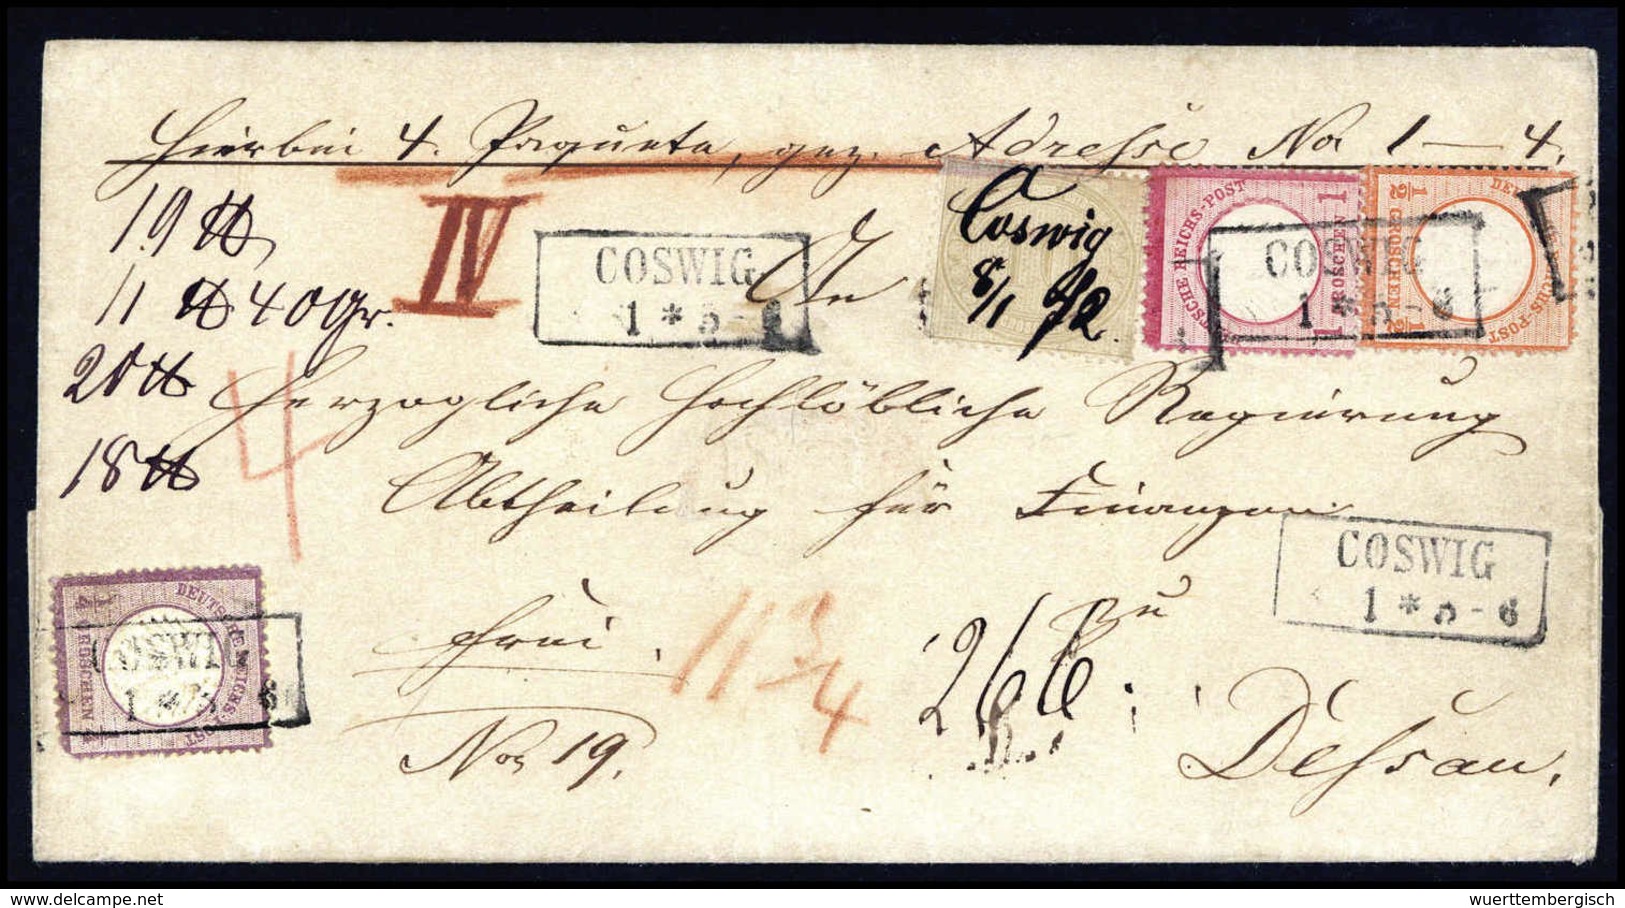 Hierbei 4. Paquete, gez. Adresse No 1 — 4.
19 ℔
11 ℔ 40 Gr.
20 ℔
18 ℔
IV
COSWIG
1 * 5 - 6
An
Coswig
8/1 72.
DEUTSCHE REICHS-POST
1 GROSCHEN 1
COSWIG
1 * 5 - 6
1/2 GROSCHEN 1/2
DEUTSCHE REICHS-POST
4
Herzogliche Hochlöbliche Regierung
Abtheilung für Finanzen
zu
Dessau.
COSWIG
1 * 5 - 6
frei.
No 19.
11 3/4
266
DEUTSCHE REICHS-POST
1/4 GROSCHEN 1/4
COSWIG
1 * 5 - 6
wuerttembergisch